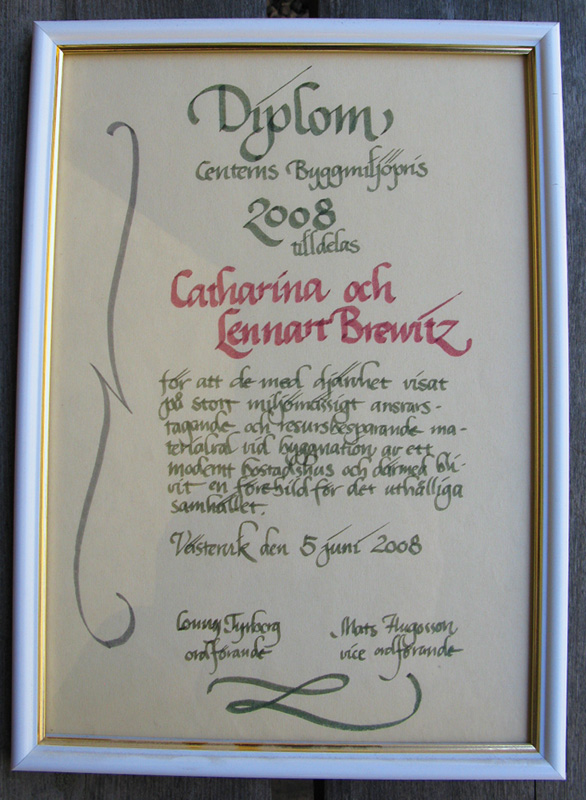 Diplom
Centerns Byggmiljöpris
2008
tilldelas
Catharina och
Lennart Brewitz
för att de med djärvhet visat
på stort miljömässigt ansvars-
tagande och resursbesparande ma-
terialval vid byggnation av ett
modernt bostadshus och därmed bli-
vit en förebild för det uthålliga
samhället.
Västervik den 5 juni 2008
Conny Tyrberg
ordförande
Mats Hugosson
vice ordförande